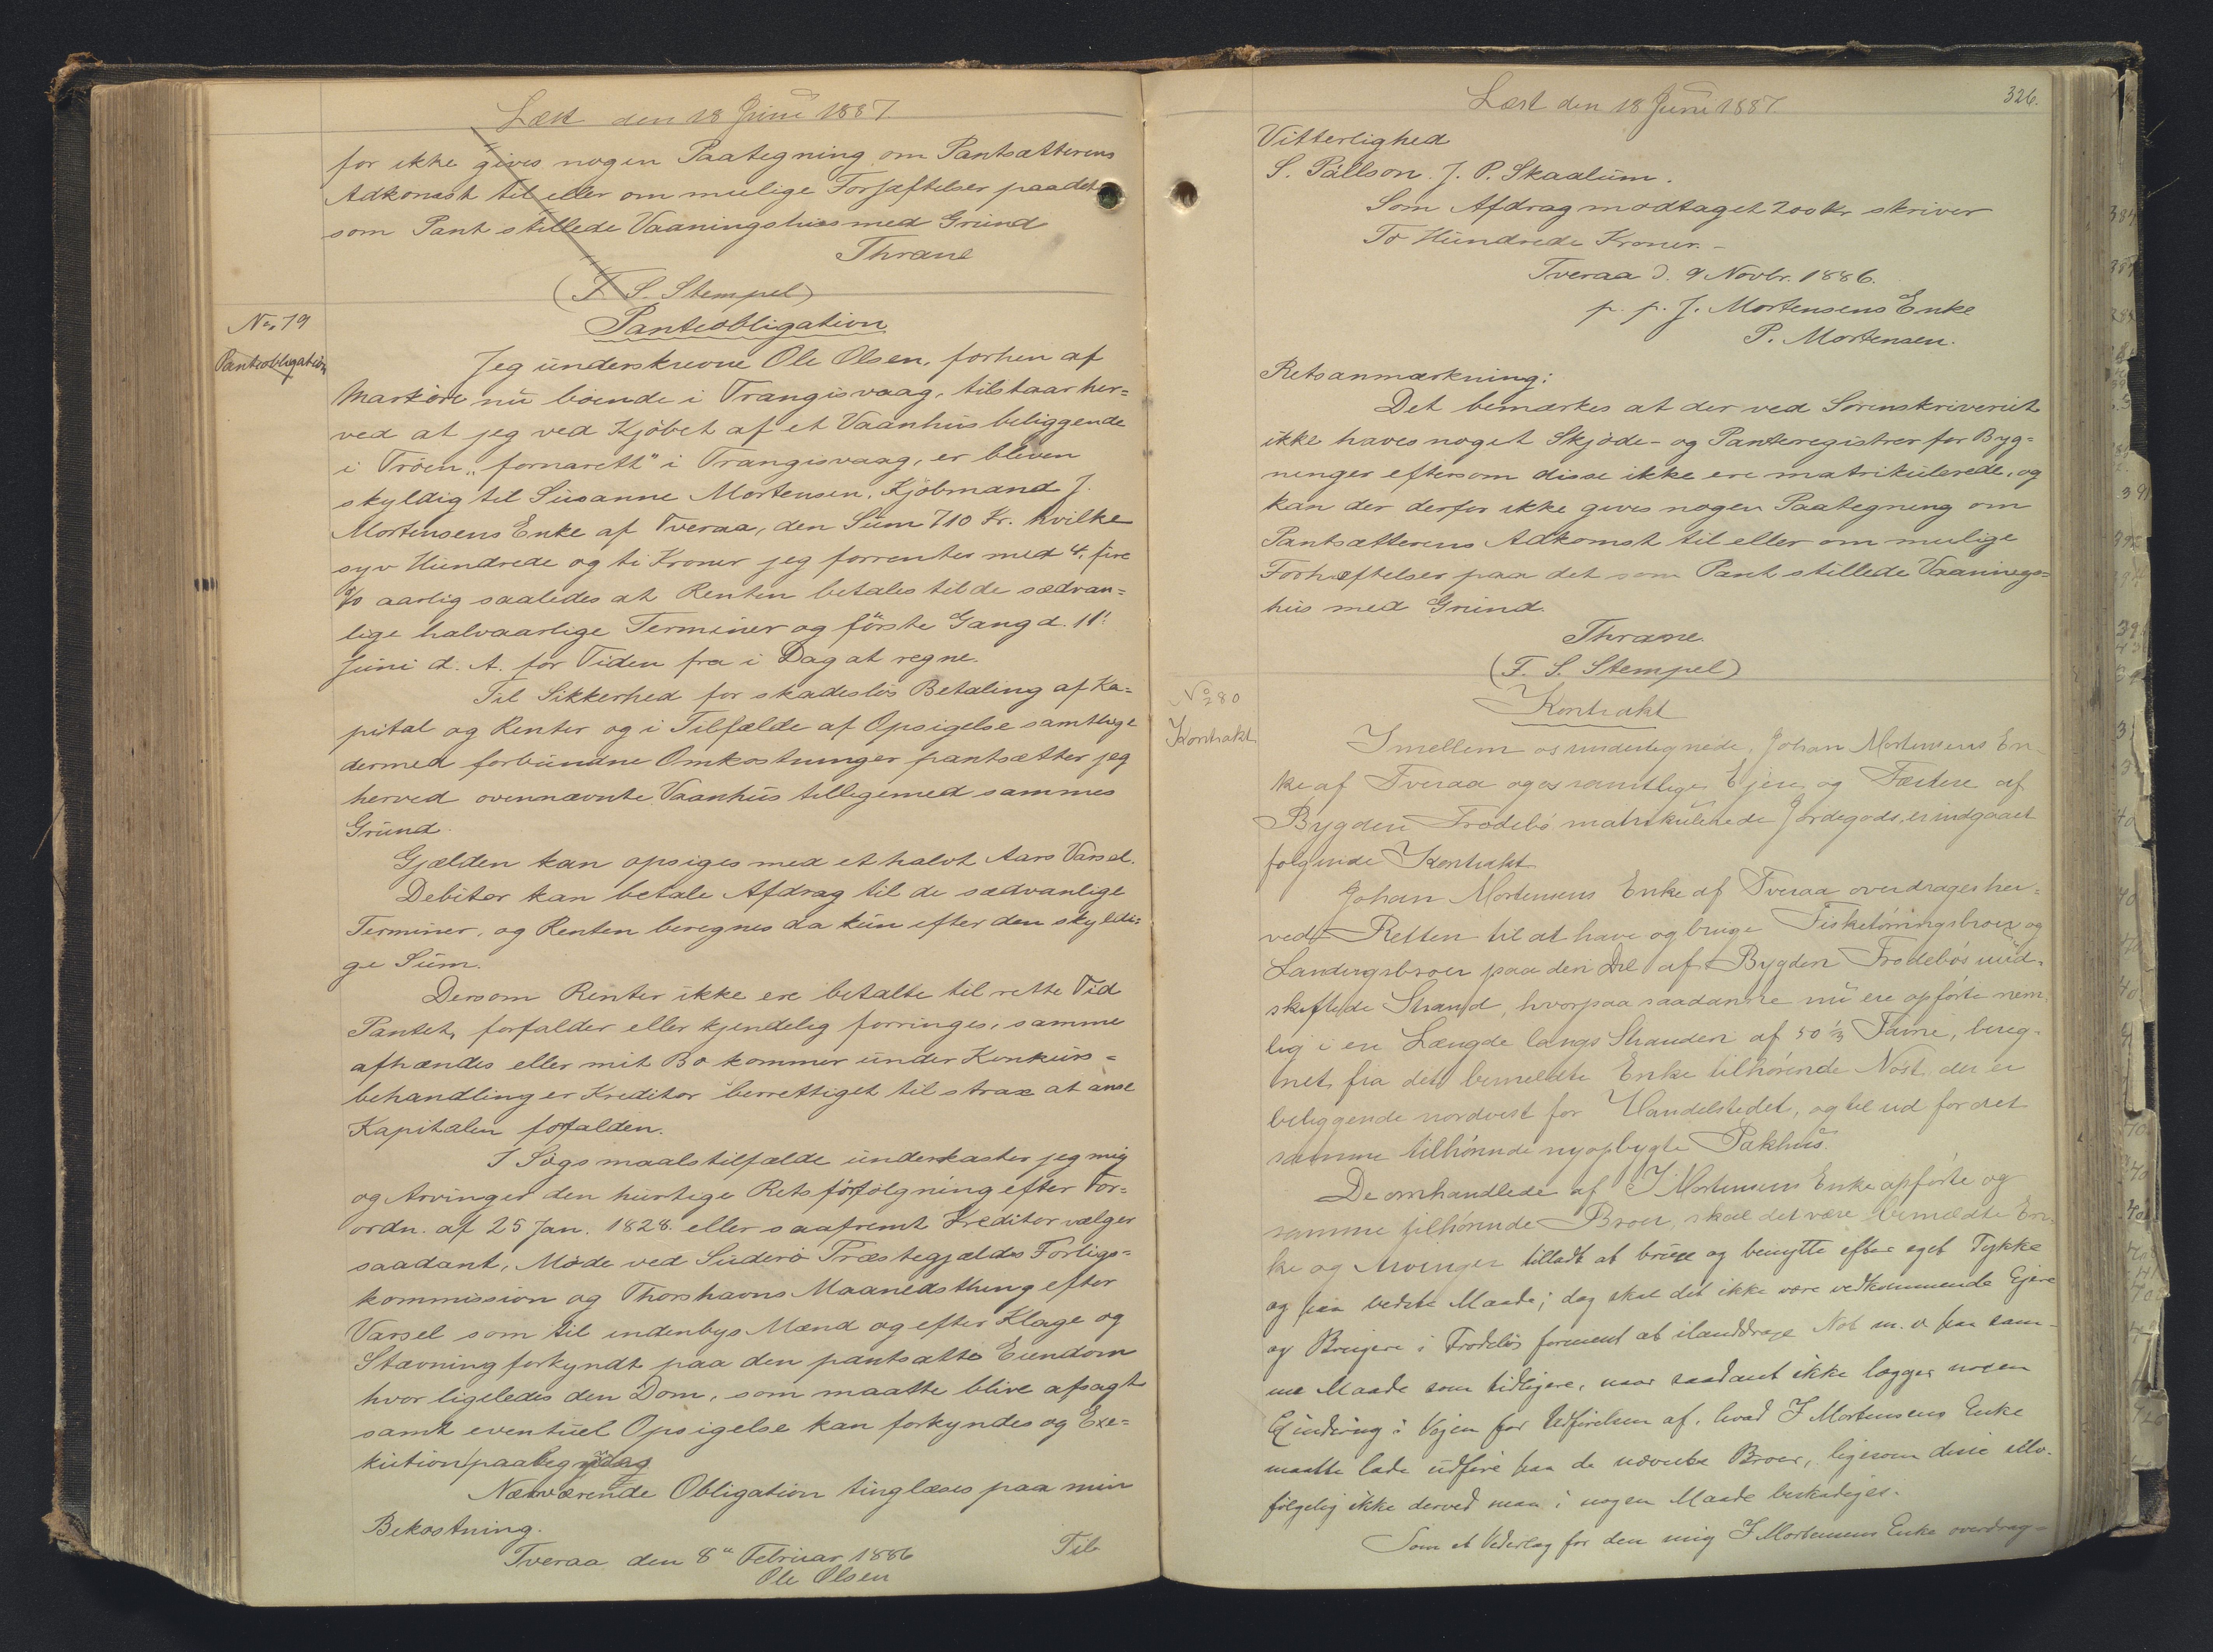 Læst den 18 Juni 1887.
for ikke gives nogen Paategning om Pantsætterens
Adkomst til eller om mulige Forhæftelser paa det
som Pant stillede Vaaningshus med Grund
Thrane
(F. S. Stempel)
No 79
Panteobligation
Panteobligation
Jeg underskrevne Ole Olsen, forhen af
Marköre nu boende i Trangisvaag, tilstaar her=
ved at jeg ved Kjöbet af et Vaanhus beliggende
i Tröen „fornarett" i Trangisvaag, er bleven
skyldig til Susanne Mortensen, Kjöbmand J.
Mortensens Enke af Tveraa, den Sum 710 Kr. hvilke
syv Hundrede og ti Kroner jeg forrenter med 4, fire
% aarlig saaledes at Renten betales til de sædvan=
lige halvaarlige Terminer og förste Gang d. 11'
Juni d. A. for Tiden fra i Dag at regne.
Til Sikkerhed for skadeslös Betaling af Ka=
pital og Renter og i Tilfælde af Opsigelse samtlige
dermed forbundne Omkostninger pantsætter jeg
herved ovennævnte Vaanhus tilligemed sammes
Grund.
Gjælden kan opsiges med et halvt Aars Varsel.
Debitor kan betale Afdrag til de sædvanlige
Terminer, og Renten beregnes da kun efter den skyldi=
ge Sum.
Dersom Renter ikke ere betalte til rette Tid
Pantet, forfalder eller kjendelig forringes, samme
afhændes eller mit Bo kommer under Konkurs=
behandling er Kreditor berettiget til strax at anse
Kapitalen forfalden.
I Sögsmaalstilfælde underkaster jeg mig
og Arvinger den hurtige Retsforfölgning efter For=
ordn. af 25 Jan. 1828. eller saafremt Kreditor vælger
saadant, Möde ved Suderö Præstegjælds Forligs=
kommission og Thorshavns Maanedsthing efter
Varsel som til indenbys Mænd og efter Klage og
Stævning forkyndt paa den pantsatte Eiendom
hvor ligeledes den Dom, som maatte blive afsagt
samt eventuel Opsigelse kan forkyndes og Exe=
kution paabegyndes
Nærværende Obligation tinglæses paa min
Bekostning.
Tveraa den 8" Februar 1886
Ole Olsen
Til
326.
Læst den 18 Juni 1887.
Vitterlighed
S. Pállson. J. P. Skaalum.
Som Afdrag modtaget 200 Kr skriver
To Hundrede Kroner.-
Tveraa d. 9 Novbr. 1886.
p. p. J. Mortensens Enke
P. Mortensen.
Retsanmærkning:
Det bemærkes at der ved Sorenskriveriet
ikke haves noget Skjöde- og Panteregister for Byg=
ninger eftersom disse ikke ere matrikulerede, og
kan der derfor ikke gives nogen Paategning om
Pantsætterens Adkomst til eller om mulige
Forhæftelser paa det som Pant stillede Vaanings=
hus med Grund.
Thrane.
(F. S. Stempel)
No 280
Kontrakt
Kontrakt
Imellem os undertegnede, Johan Mortensens En-
ke af Tveraa og os samtlige Ejere og Fæstere af
Bygden Frodebö matrikulerede Jordegods, er indgaaet
følgende Kontrakt
Johan Mortensens Enke af Tveraa overdrages her=
ved Retten til at have og bruge Fisketörringsbroer og
Landingsbroer paa den Del af Bygden Frodebös uud=
skiftede Strand, hvorpaa saadanne nu ere opförte nem
lig i en Længde langs Stranden af 50 1/3 Favne, bereg-
net fra det bemeldte Enke tilhörende Nöst, der er
beliggende nordvest for Handelstedet, og til ud for det
samme tilhörende nyopbygte Pakhus.
De omhandlede af J Mortensens Enke opförte og
samme tilhörende Broer, skal det være bemeldte En-
ke og Arvinger tilladt at bruge og benytte efter eget Tykke
og paa bedste Maade; dog skal det ikke være vedkommende Ejere
og Brugere i Frodebös forment at ilanddrage Not m. v. paa sam-
me Maade som tidligere, naar saadant ikke lægger nogen
Hindring i Vejen for Udförelsen af, hvad J Mortensens Enke
maatte lade udföre paa de nævnte Broer, ligesom disse selv-
fölgelig ikke derved maa i nogen Maade beskadiges.
Som et Vederlag for den mig J Mortensens Enke overdrag=